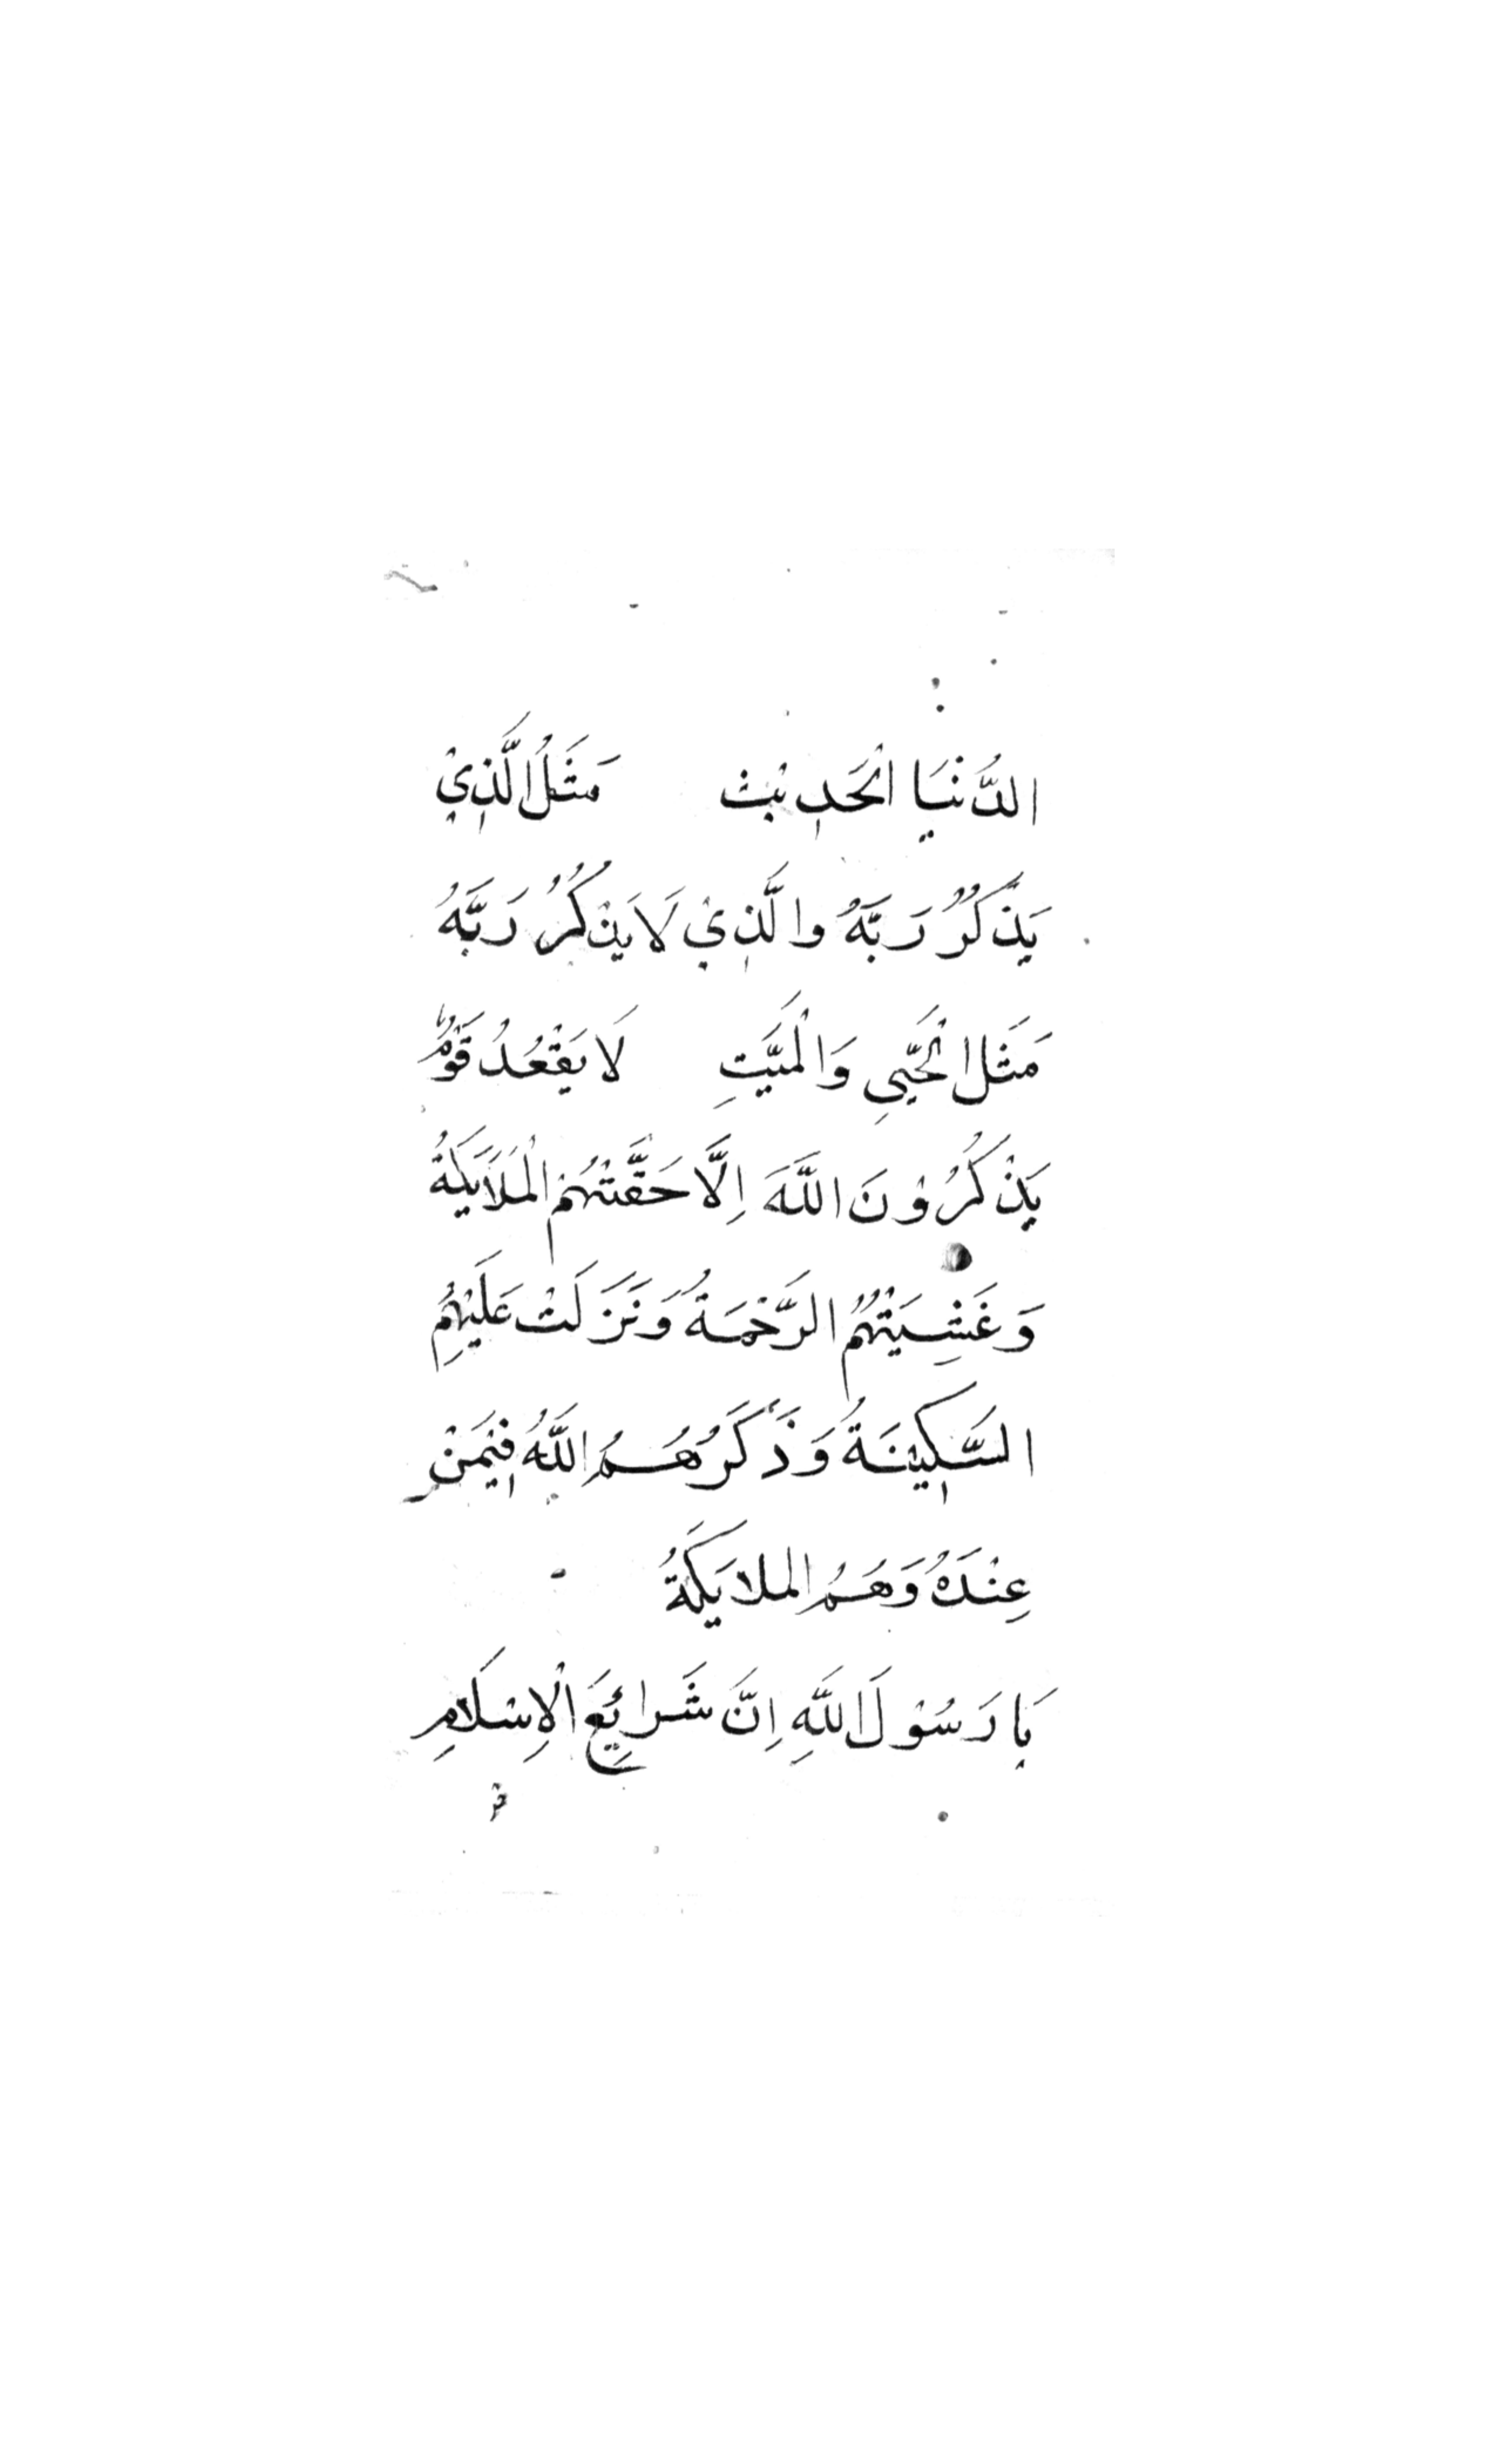 الدُّنْيَا الْحَدِيْث مَثَلُ الَّذِيْ
يَذْكُرُ رَبَّهُ والَّذِيْ لَا يَذْكُرُ رَبَّهُ
مَثَل الْحَيِّ وَالْمَيِّتِ لَا يَقْعُدُ قَوْمٌ
يَذْكُرُوْنَ اللَّهَ اِلَّا حَفَّتْهُمْ الْمَلَايِكَةُ
وَغَشِيَتْهُمُ الرَّحْمَةُ وَنَزَلَتْ عَلَيْهِمِ
السَّكِيْنَةُ وَذَكَرَهُمُ اللَّهُ فِيْمَنْ
عِنْدَهُ وَهُمُ الملايَكَةُ
يَا رَسُوْلَ اللَّهِ اِنَّ شَرَائِعَ الْاِسْلَامِ